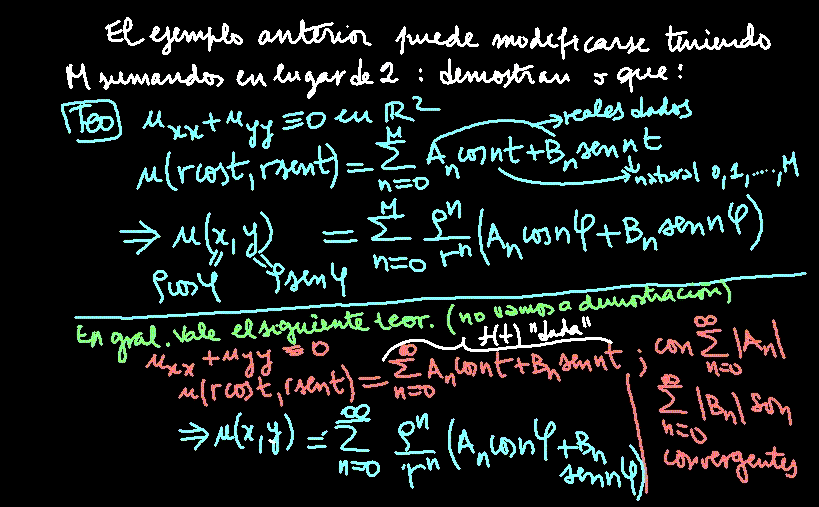 El ejemplo anterior puede modificarse teniendo
M sumandos en lugar de 2 : demostran que:
Teo u_xx + u_yy ≡ 0 en ℝ² → reales dados
u(r cos t, r sen t) = ∑_{n=0}^{M} A_n cos nt + B_n sen nt
natural 0, 1, ...., M
⇒ u(x, y) = ∑_{n=0}^{M} ρ^n/r^n (A_n cos nφ + B_n sen nφ)
ρ cos φ ρ sen φ
En gral. vale el siguiente teor. (no vamos a demostración)
f(t) "dada"
u_xx + u_yy = 0
u(r cos t, r sen t) = ∑_{n=0}^{∞} A_n cos nt + B_n sen nt ; con ∑_{n=0}^{∞} |A_n|
∑_{n=0}^{∞} |B_n| son
convergentes
⇒ u(x, y) = ∑_{n=0}^{∞} ρ^n/r^n (A_n cos nφ + B_n sen nφ)